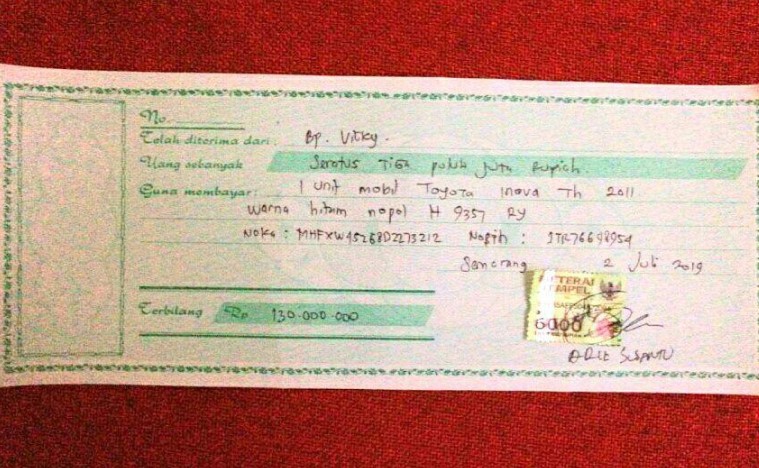 No.
Telah diterima dari: Bp. Vicky.
Uang sebanyak Seratus Tiga puluh juta Rupiah.
Guna membayar: 1 Unit mobil Toyota Inova Th 2011
Warna hitam nopol H 9357 RY
Noka: MHFXW45268D2273212 Nosin: 1TR76698954
2 Juli 2019
Terbilang Rp 130.000.000
METERAI
TEMPEL
6000